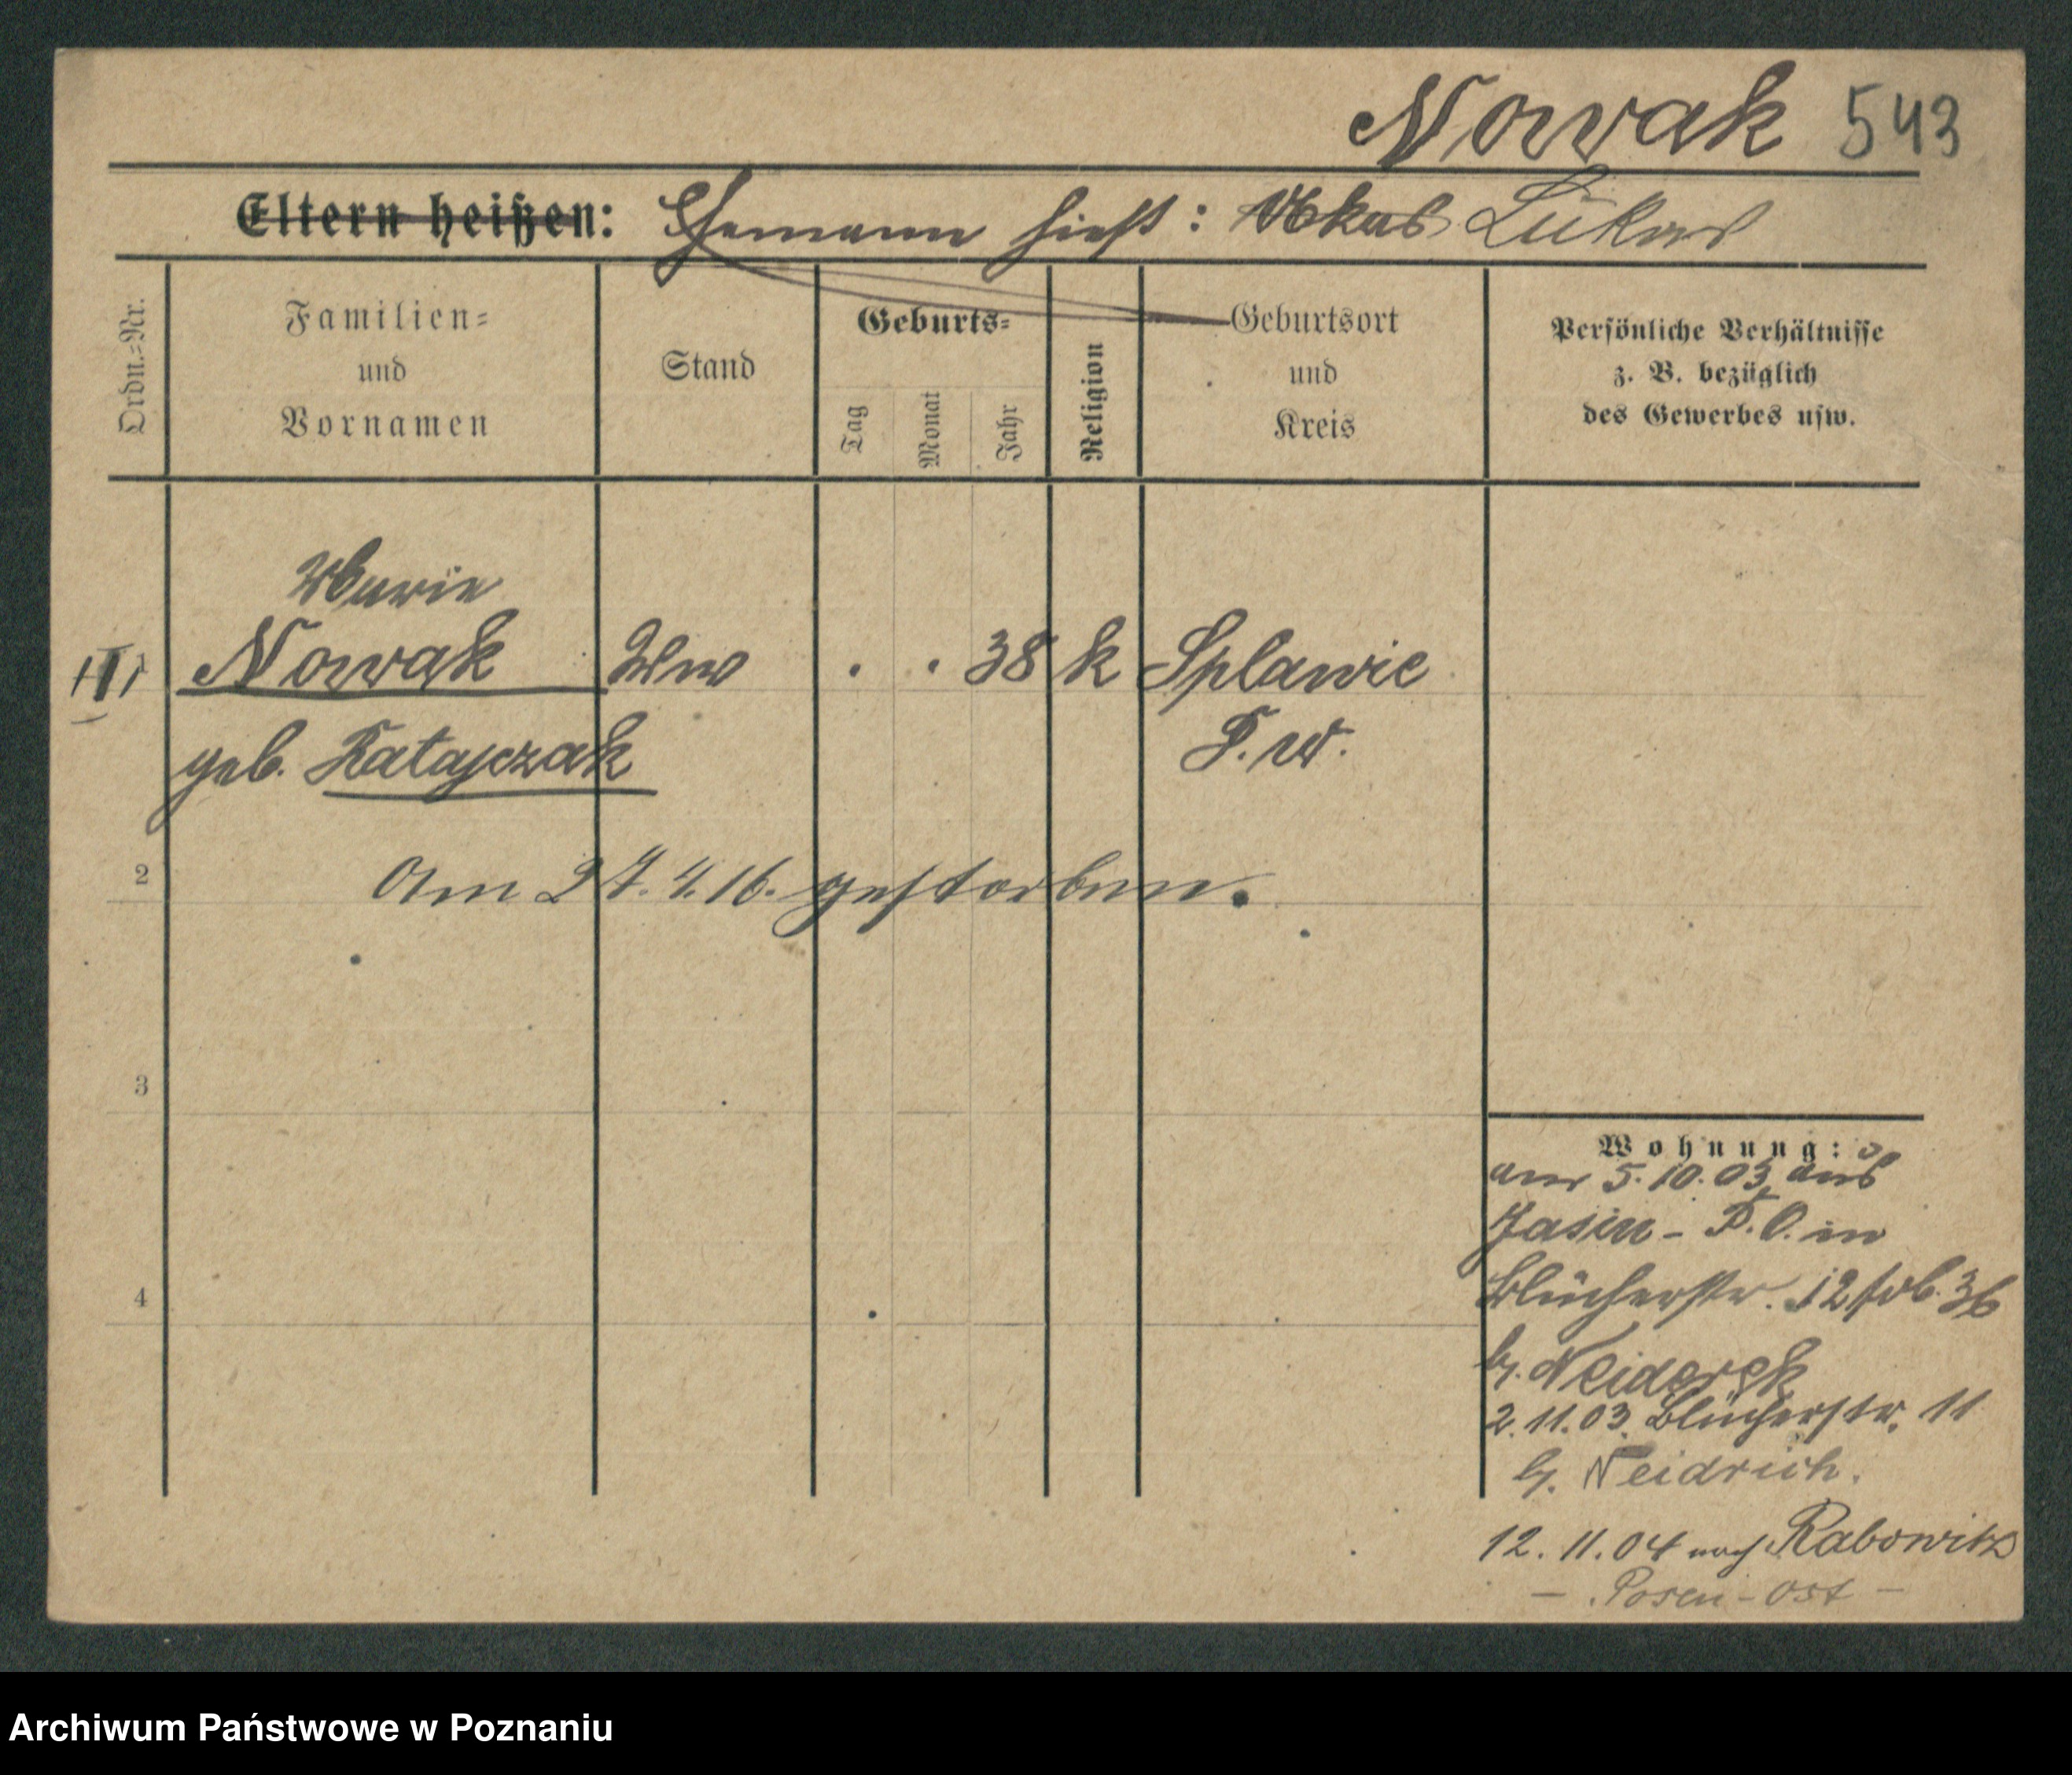 Nowak 543
Eltern heißen: Ehemann hieß: Lukas
Ordn.-Nr.
Familien=
und
Vornamen
Stand
Geburts=
Tag
Monat
Jahr
Religion
Geburtsort
und
Kreis
Persönliche Verhältnisse
z. B. bezüglich
des Gewerbes usw.
Marie
Nowak Ww . . 38 k Splawie
geb. Ratajczak P. W.
2 Am 27.4.16. gestorben.
3
4
Wohnung:
am 5.10.03 aus
Jasin - P.O. in
Blücherstr. 12 36
b. Neiderek
2.11.03. Blücherstr. 11
b. Neidrich.
12.11.04 nach Rabowitz
- Posen-Ost -
Archiwum Państwowe w Poznaniu